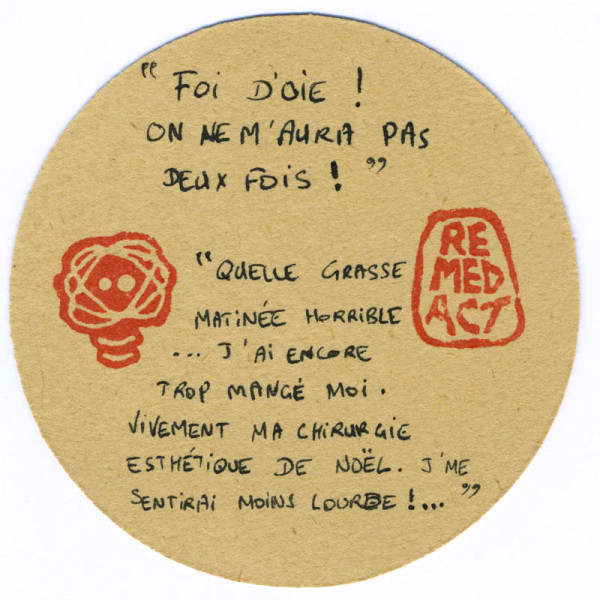 " FOI D'OIE !
ON NE M'AURA PAS
DEUX FOIS ! "
" QUELLE GRASSE
MATINÉE HORRIBLE
... J'AI ENCORE
TROP MANGÉ MOI.
VIVEMENT MA CHIRURGIE
ESTHÉTIQUE DE NOËL. J'ME
SENTIRAI MOINS LOURDE !... "
RE
MED
ACT